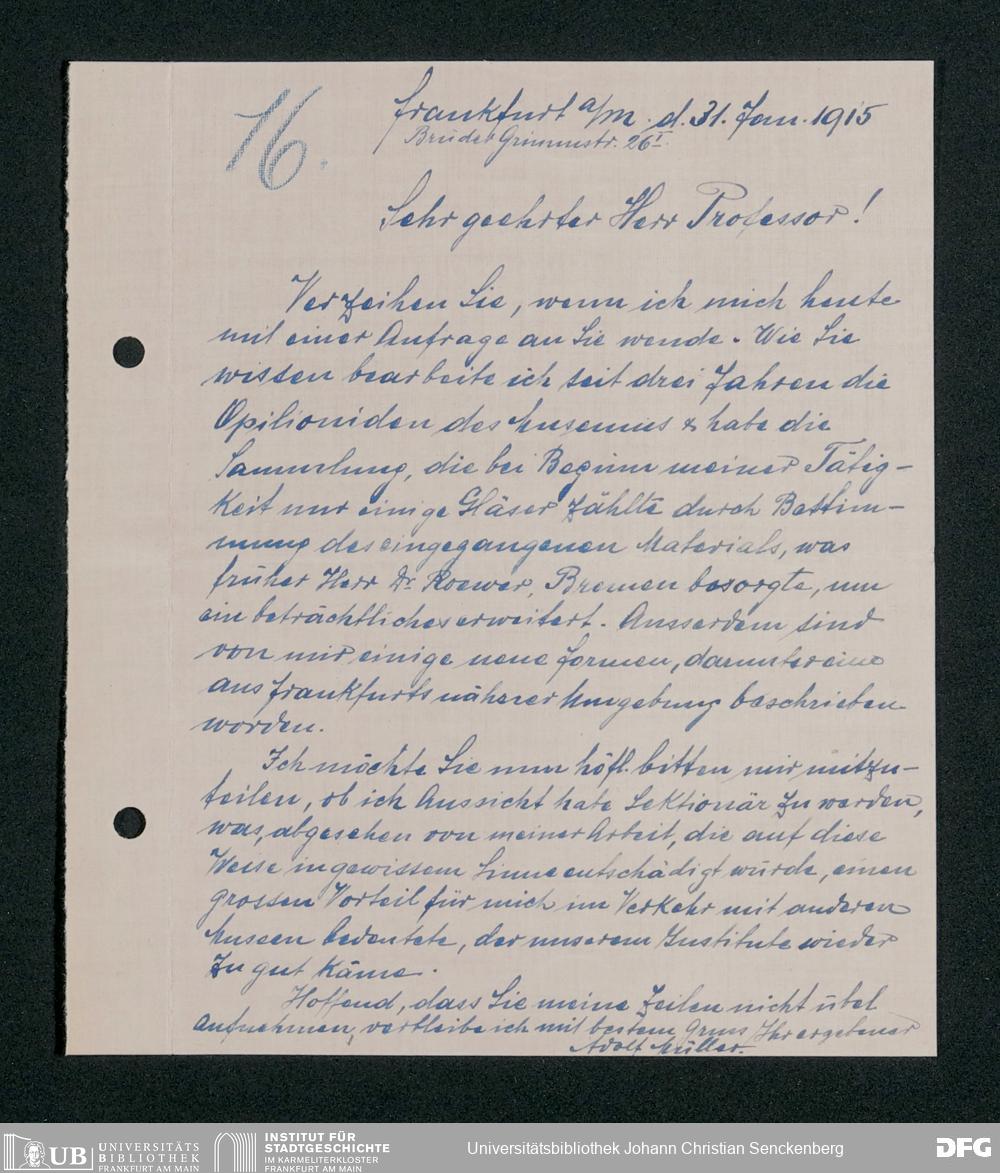 16.
Frankfurt a/M. d. 31. Jan. 1915
Brüder Grimmstr. 26 I.
Sehr geehrter Herr Professor!
Verzeihen Sie, wenn ich mich heute
mit einer Anfrage an Sie wende. Wie Sie
wissen bearbeite ich seit drei Jahren die
Opilioniden des Museums & habe die
Sammlung, die bei Beginn meiner Tätig-
keit nur einige Gläser zählte durch Bestim-
mung des eingegangenen Materials, was
früher Herr Dr. Roewer, Bremen besorgte, um
ein beträchtliches erweitert. Ausserdem sind
von mir einige neue Formen, darunter eine
aus Frankfurts näherer Umgebung beschrieben
worden.
Ich möchte Sie nun höfl. bitten mir mitzu-
teilen, ob ich Aussicht habe Sektionär zu werden,
was, abgesehen von meiner Arbeit, die auf diese
Weise in gewissem Sinne entschädigt würde, einen
grossen Vorteil für mich im Verkehr mit anderen
Museen bedeutete, der unserem Institute wieder
zu gut käme.
Hoffend, dass Sie meine Zeilen nicht übel
aufnehmen, verbleibe ich mit bestem Gruss Ihr ergebener
Adolf Müller.
UB UNIVERSITÄTS
BIBLIOTHEK
FRANKFURT AM MAIN
INSTITUT FÜR
STADTGESCHICHTE
IM KARMELITERKLOSTER
FRANKFURT AM MAIN
Universitätsbibliothek Johann Christian Senckenberg
DFG